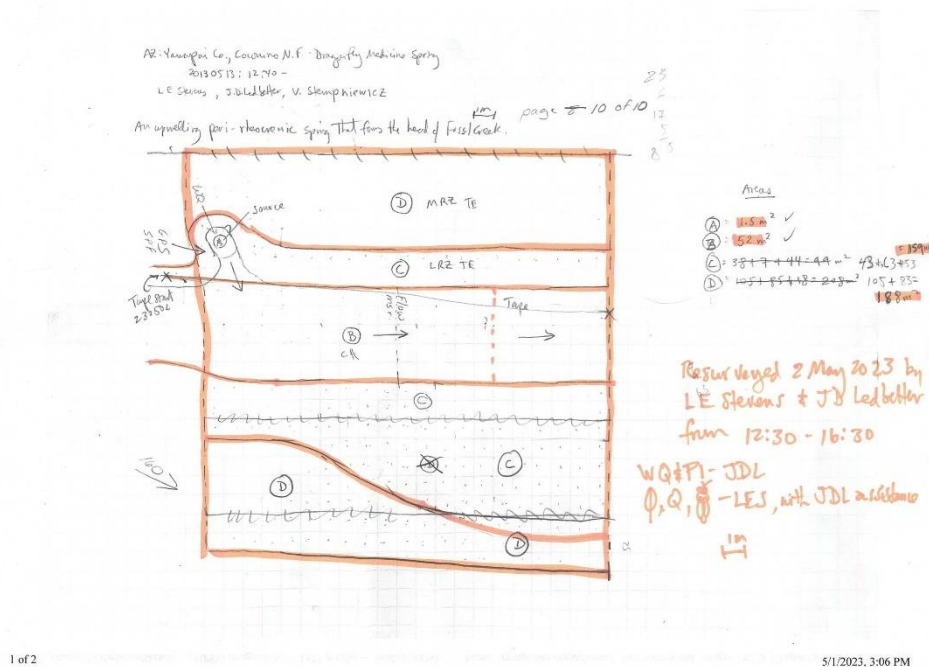 AZ: Yavapai Co., Coconino N.F. Dragonfly Medicine Spring
20130513; 12:40 -
LE Stevens, J.D. Ledbetter, V. Stempniewicz
1m
page 10 of 10
An upwelling peri-rheocrenic spring that forms the head of Fossil Creek.
23
6
17
5
8
D MRZ TE
WQ
source
A
GPS
SPF
C LRZ TE
Tape start
Flow
msr
Tape
?
B
CH
C
160
D
C
D
25
Areas
A: 1.5 m² ✓
B: 52 m² ✓
C: 38+7+44=99 m² 43+63+53
= 159 m
D: 105+85+18=208 m² 105+83=
188 m²
Resurveyed 2 May 2023 by
LE Stevens & JD Ledbetter
from 12:30 - 16:30
WQ & FI - JDL
Q, - LES, with JDL assistance
1m
1 of 2
5/1/2023, 3:06 PM